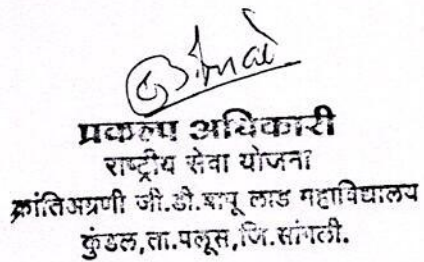 प्रकल्प अधिकारी
राष्ट्रीय सेवा योजना
क्रांतिअग्रणी जी.डी.बापू लाड महाविद्यालय
कुंडल,ता.पलूस,जि.सांगली.